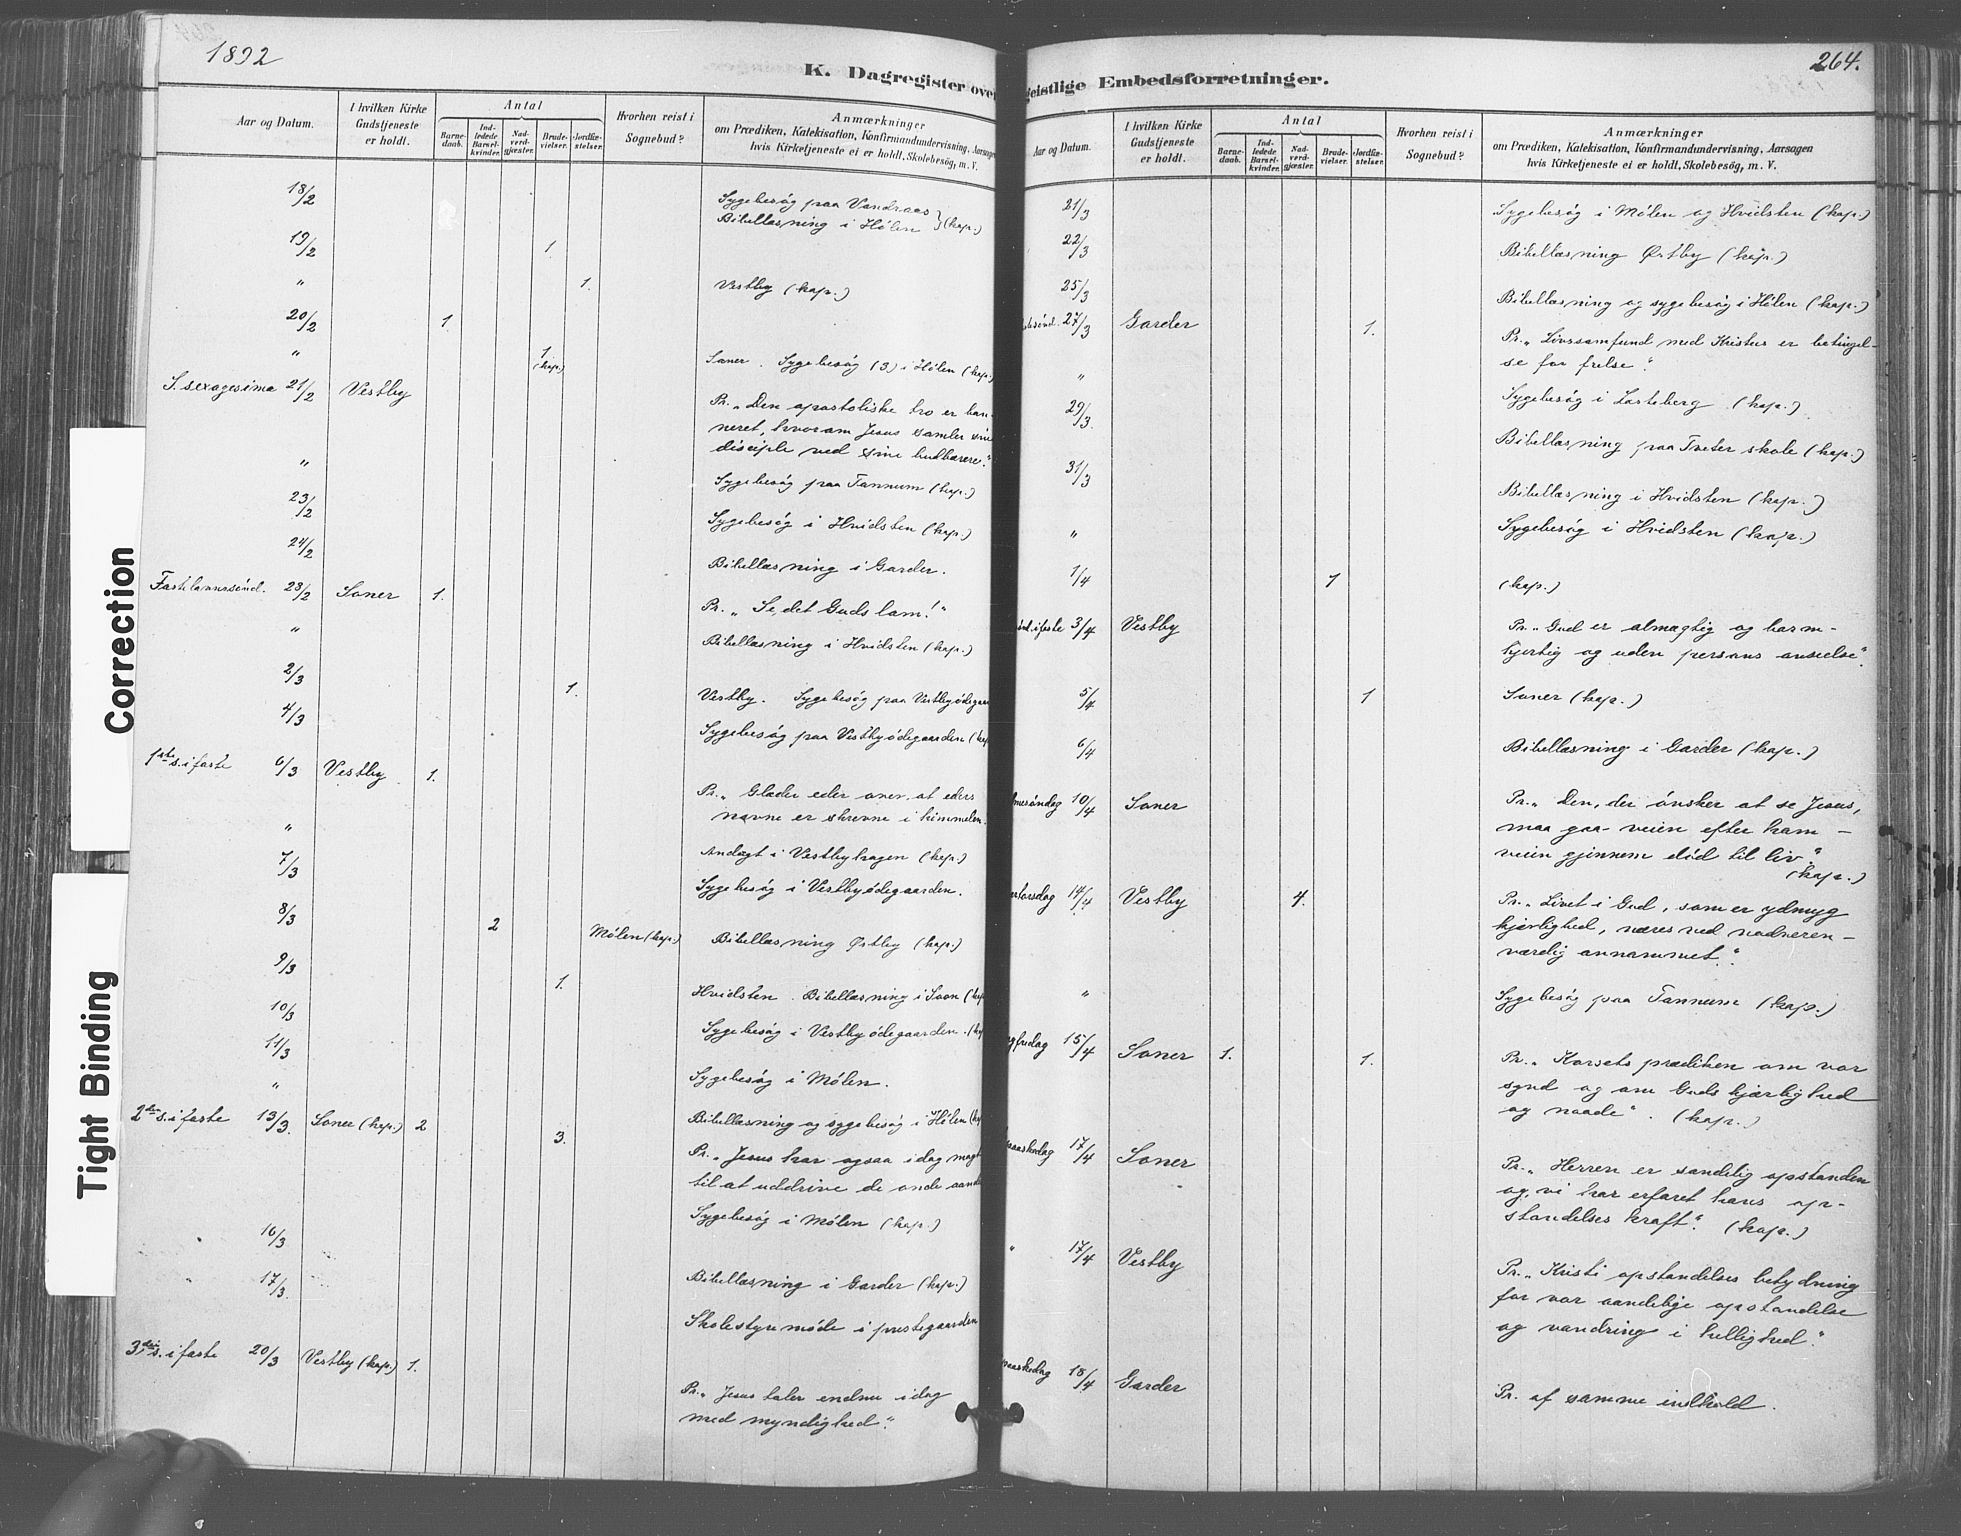 1892
K. Dagregister over
Aar og Datum.
I hvilken Kirke Gudstjeneste er holdt.
Antal
Barne-daab.
Ind-ledede Barsel-kvinder.
Nad-verd-gjæster.
Brude-vielser.
Jordfæ-stelser.
Hvorhen reist i Sognebud?
Anmærkninger
om Prædiken, Katekisation, Konfirmandundervisning, Aarsagen
hvis Kirketjeneste ei er holdt, Skolebesøg, m. V.
18/2 Sygebesøg paa Vandraas
Bibellæsning i Hølen } (kap.)
19/2 1
" 1. Vestby (kap.)
20/2 1.
" 1 (kap.) Soner. Sygebesøg (3) i Hølen (kap.)
S. sexagesima 21/2 Vestby
Pr. „Den apostoliske tro er ban-
neret, hvorom Jesus samler sine
disciple ved sine budbærere."
" Sygebesøg paa Tannum (kap.)
23/2 Sygebesøg i Hvidsten (kap.)
24/2 Bibellæsning i Garder.
Fastelavnssønd. 28/2 Soner 1. Pr. „Se, det Guds lam!"
" Bibellæsning i Hvidsten (kap.)
2/3 1. Vestby. Sygebesøg paa Vestbyødegaar
4/3 Sygebesøg paa Vestbyødegaarden (kap
1ste s. i faste 6/3 Vestby 1.
Pr. „Glæder eder over, at eders
navne er skrevne i himmelen.
" Andagt i Vestbyhagen (kap.)
7/3 Sygebesøg i Vestbyødegaarden.
8/3 2 Mølen (kap.) Bibellæsning Østby (kap.)
9/3 1. Hvidsten. Bibellæsning i Soon (kap
10/3 Sygebesøg i Vestbyødegaarden. (kap
11/3 Sygebesøg i Mølen.
" Bibellæsning og sygebesøg i Hølen (kap
2den s. i faste 13/3. Soner (kap.) 2 3.
Pr. „Jesus har ogsaa idag magt
til at uddrive de onde aand
Sygebesøg i Mølen (kap.)
16/3 Bibellæsning i Garder (kap.)
17/3. Skolestyremøde i prestegaarden
3die s. i faste 20/3 Vestby (kap.) 1.
Pr. „Jesus taler endnu idag
med myndighed."
264.
geistlige Embedsforretninger.
Aar og Datum.
I hvilken Kirke Gudstjeneste er holdt.
Antal
Barne-daab.
Ind-ledede Barsel-kvinder.
Nad-verd-gjæster.
Brude-vielser.
Jordfæ-stelser.
Hvorhen reist i Sognebud?
Anmærkninger
om Prædiken, Katekisation, Konfirmandundervisning, Aarsagen
hvis Kirketjeneste ei er holdt, Skolebesøg, m. V.
21/3 Sygebesøg i Mølen og Hvidsten (kap.)
22/3 Bibellæsning Østby (kap.)
25/3 Bibellæsning og sygebesøg i Hølen (kap.)
sønd. 27/3 Garder 1.
Pr. „Livssamfund med Kristus er betingel-
se for frelse."
" Sygebesøg i Lasteberg (kap.)
29/3. Bibellæsning paa Tveter skole (kap.)
31/3 Bibellæsning i Hvidsten (kap.)
" Sygebesøg i Hvidsten (kap.)
1/4 1 (kap.)
sønd. i faste 3/4 Vestby
Pr. „Gud er almægtig og barm-
hjertig og uden persons anseelse".
5/4 1 Soner (kap.)
6/4 Bibellæsning i Garder (kap.)
lmesøndag 10/4 Soner
Pr. „Den, der ønsker at se Jesus,
maa gaa veien efter ham –
veien gjennem død til liv."
(kap.)
ærtorsdag 14/4 Vestby 4.
Pr. „Livet i Gud, som er ydmyg
kjærlighed, næres ved nadveren –
værdig annammet."
" Sygebesøg paa Tannum (kap.)
gfredag 15/4 Soner 1. 1.
Pr. „Korsets prædiken om vor
synd og om Guds kjærlighed
og naade". (kap.)
paaskedag 17/4 Soner
Pr. „Herren er sandelig opstanden
og vi har erfaret hans op-
standelses kraft." (kap.)
" 17/4 Vestby
Pr. „Kristi opstandelses betydning
for vor aandelige opstandelse
og vandring i hellighed."
paaskedag 18/4 Garder
Pr. af samme indhold.
Correction
Tight Binding